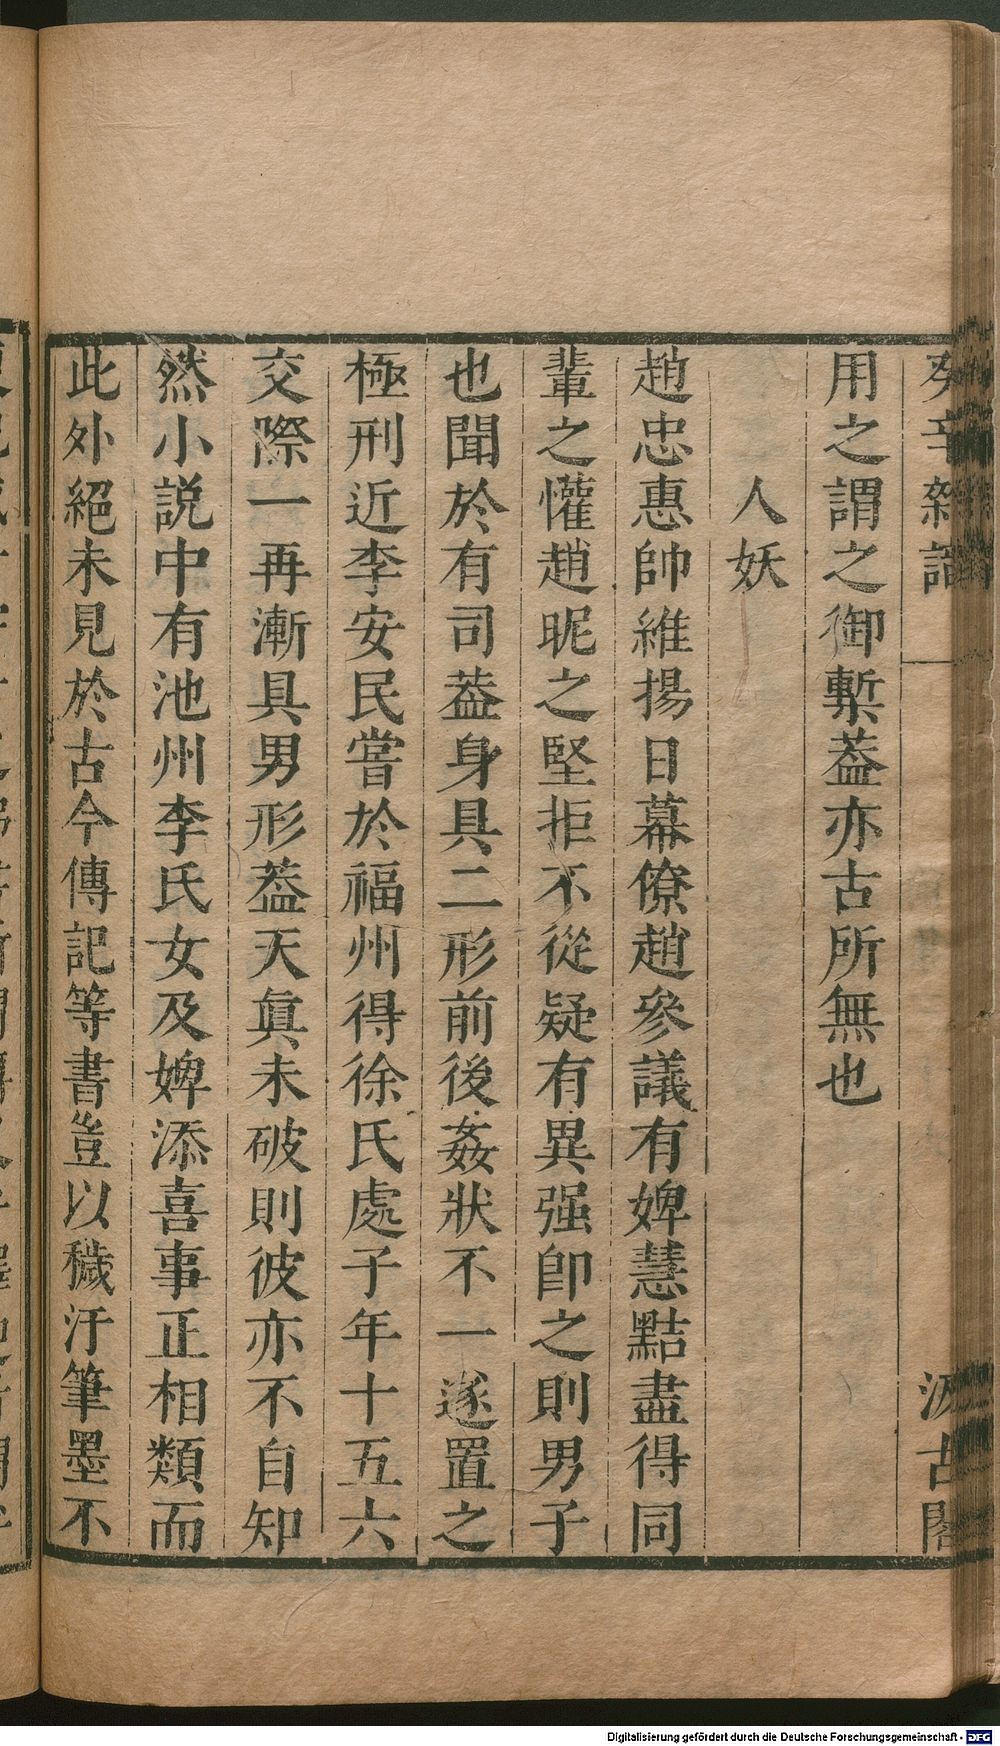 癸辛雜識 一 汲古閣
用之謂之御槧葢亦古所無也
人妖
趙忠惠帥維揚日幕僚趙參議有婢慧黠盡得同
輩之懽趙昵之堅拒不從疑有異强卽之則男子
也聞於有司葢身具二形前後姦狀不一遂置之
極刑近李安民嘗於福州得徐氏處子年十五六
交際一再漸具男形葢天眞未破則彼亦不自知
然小説中有池州李氏女及婢添喜事正相類而
此外絕未見於古今傳記等書豈以穢汙筆墨不
Digitalisierung gefördert durch die Deutsche Forschungsgemeinschaft - DFG